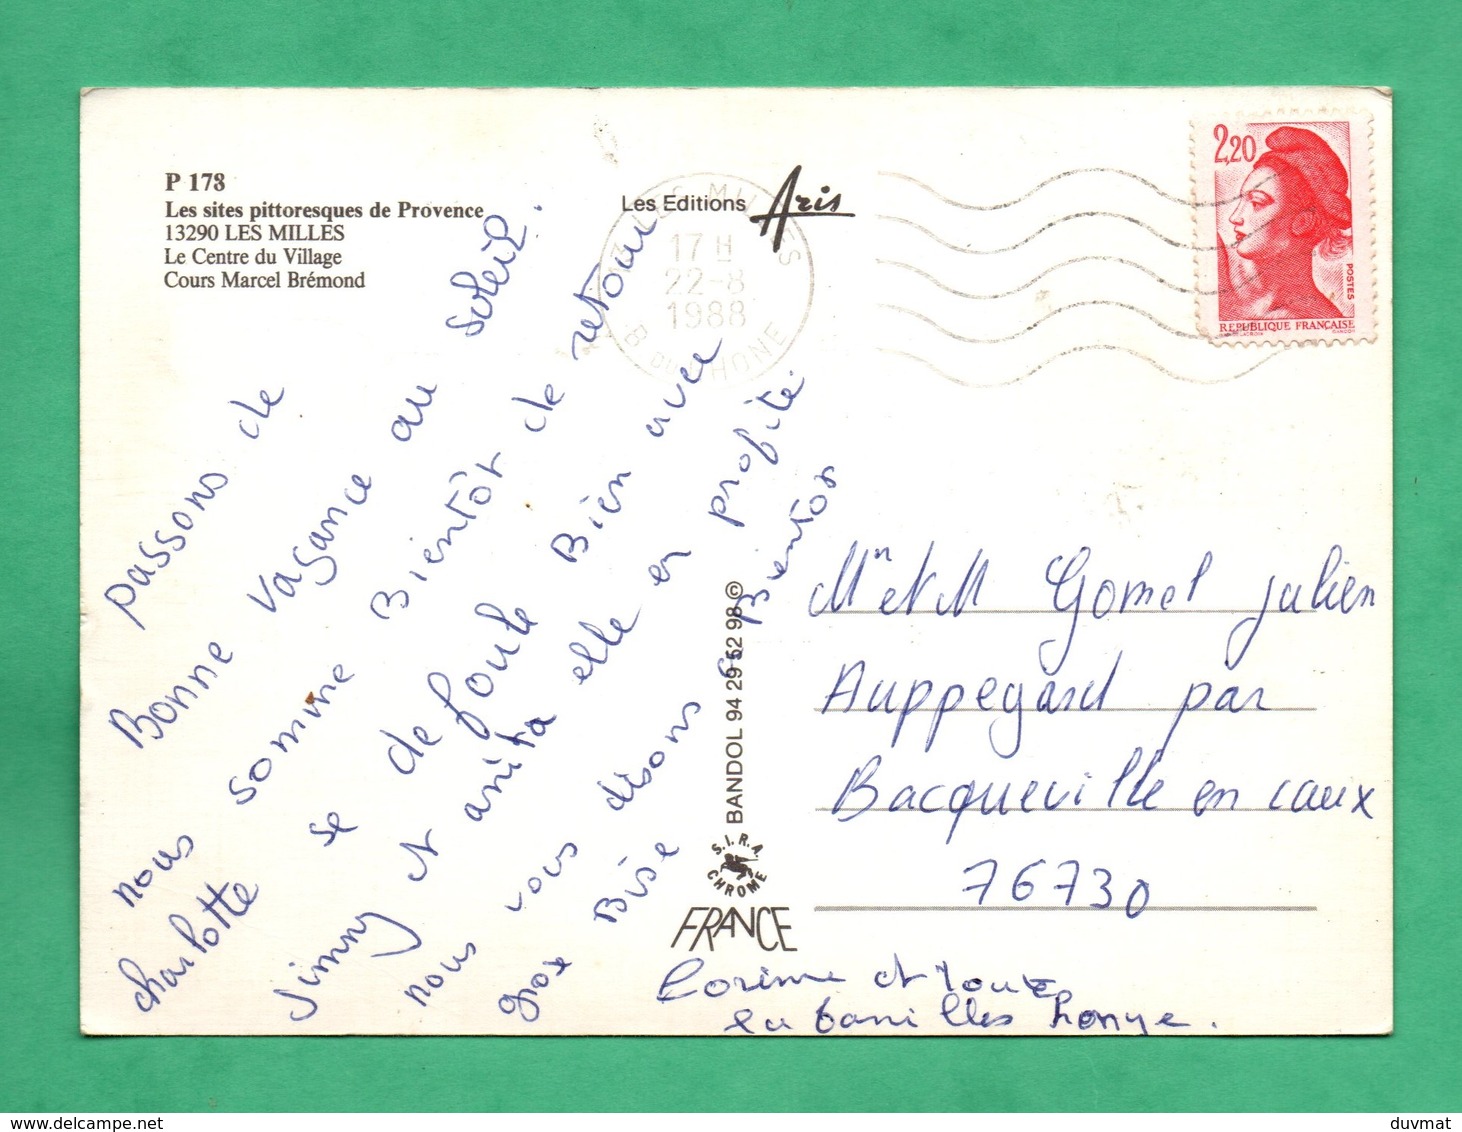 P 178
Les sites pittoresques de Provence
13290 LES MILLES
Le Centre du Village
Cours Marcel Brémond
Les Editions Aris
17 H
22-8
1988
B. DU RHONE
2,20
POSTES
REPUBLIQUE FRANÇAISE
passons de
Bonne vagance au soleil.
nous somme Bientôt de retour
charlotte se de foule Bien avec
Jimmy et anita elle en profite.
nous vous disons a Bientos
gros Bise
BANDOL 94 29 52 98 ©
S.I.R.A.
CHROME
FRANCE
Mn et M Gomel julien
Auppegard par
Bacqueville en caux
76730
Corinne et
duvmat